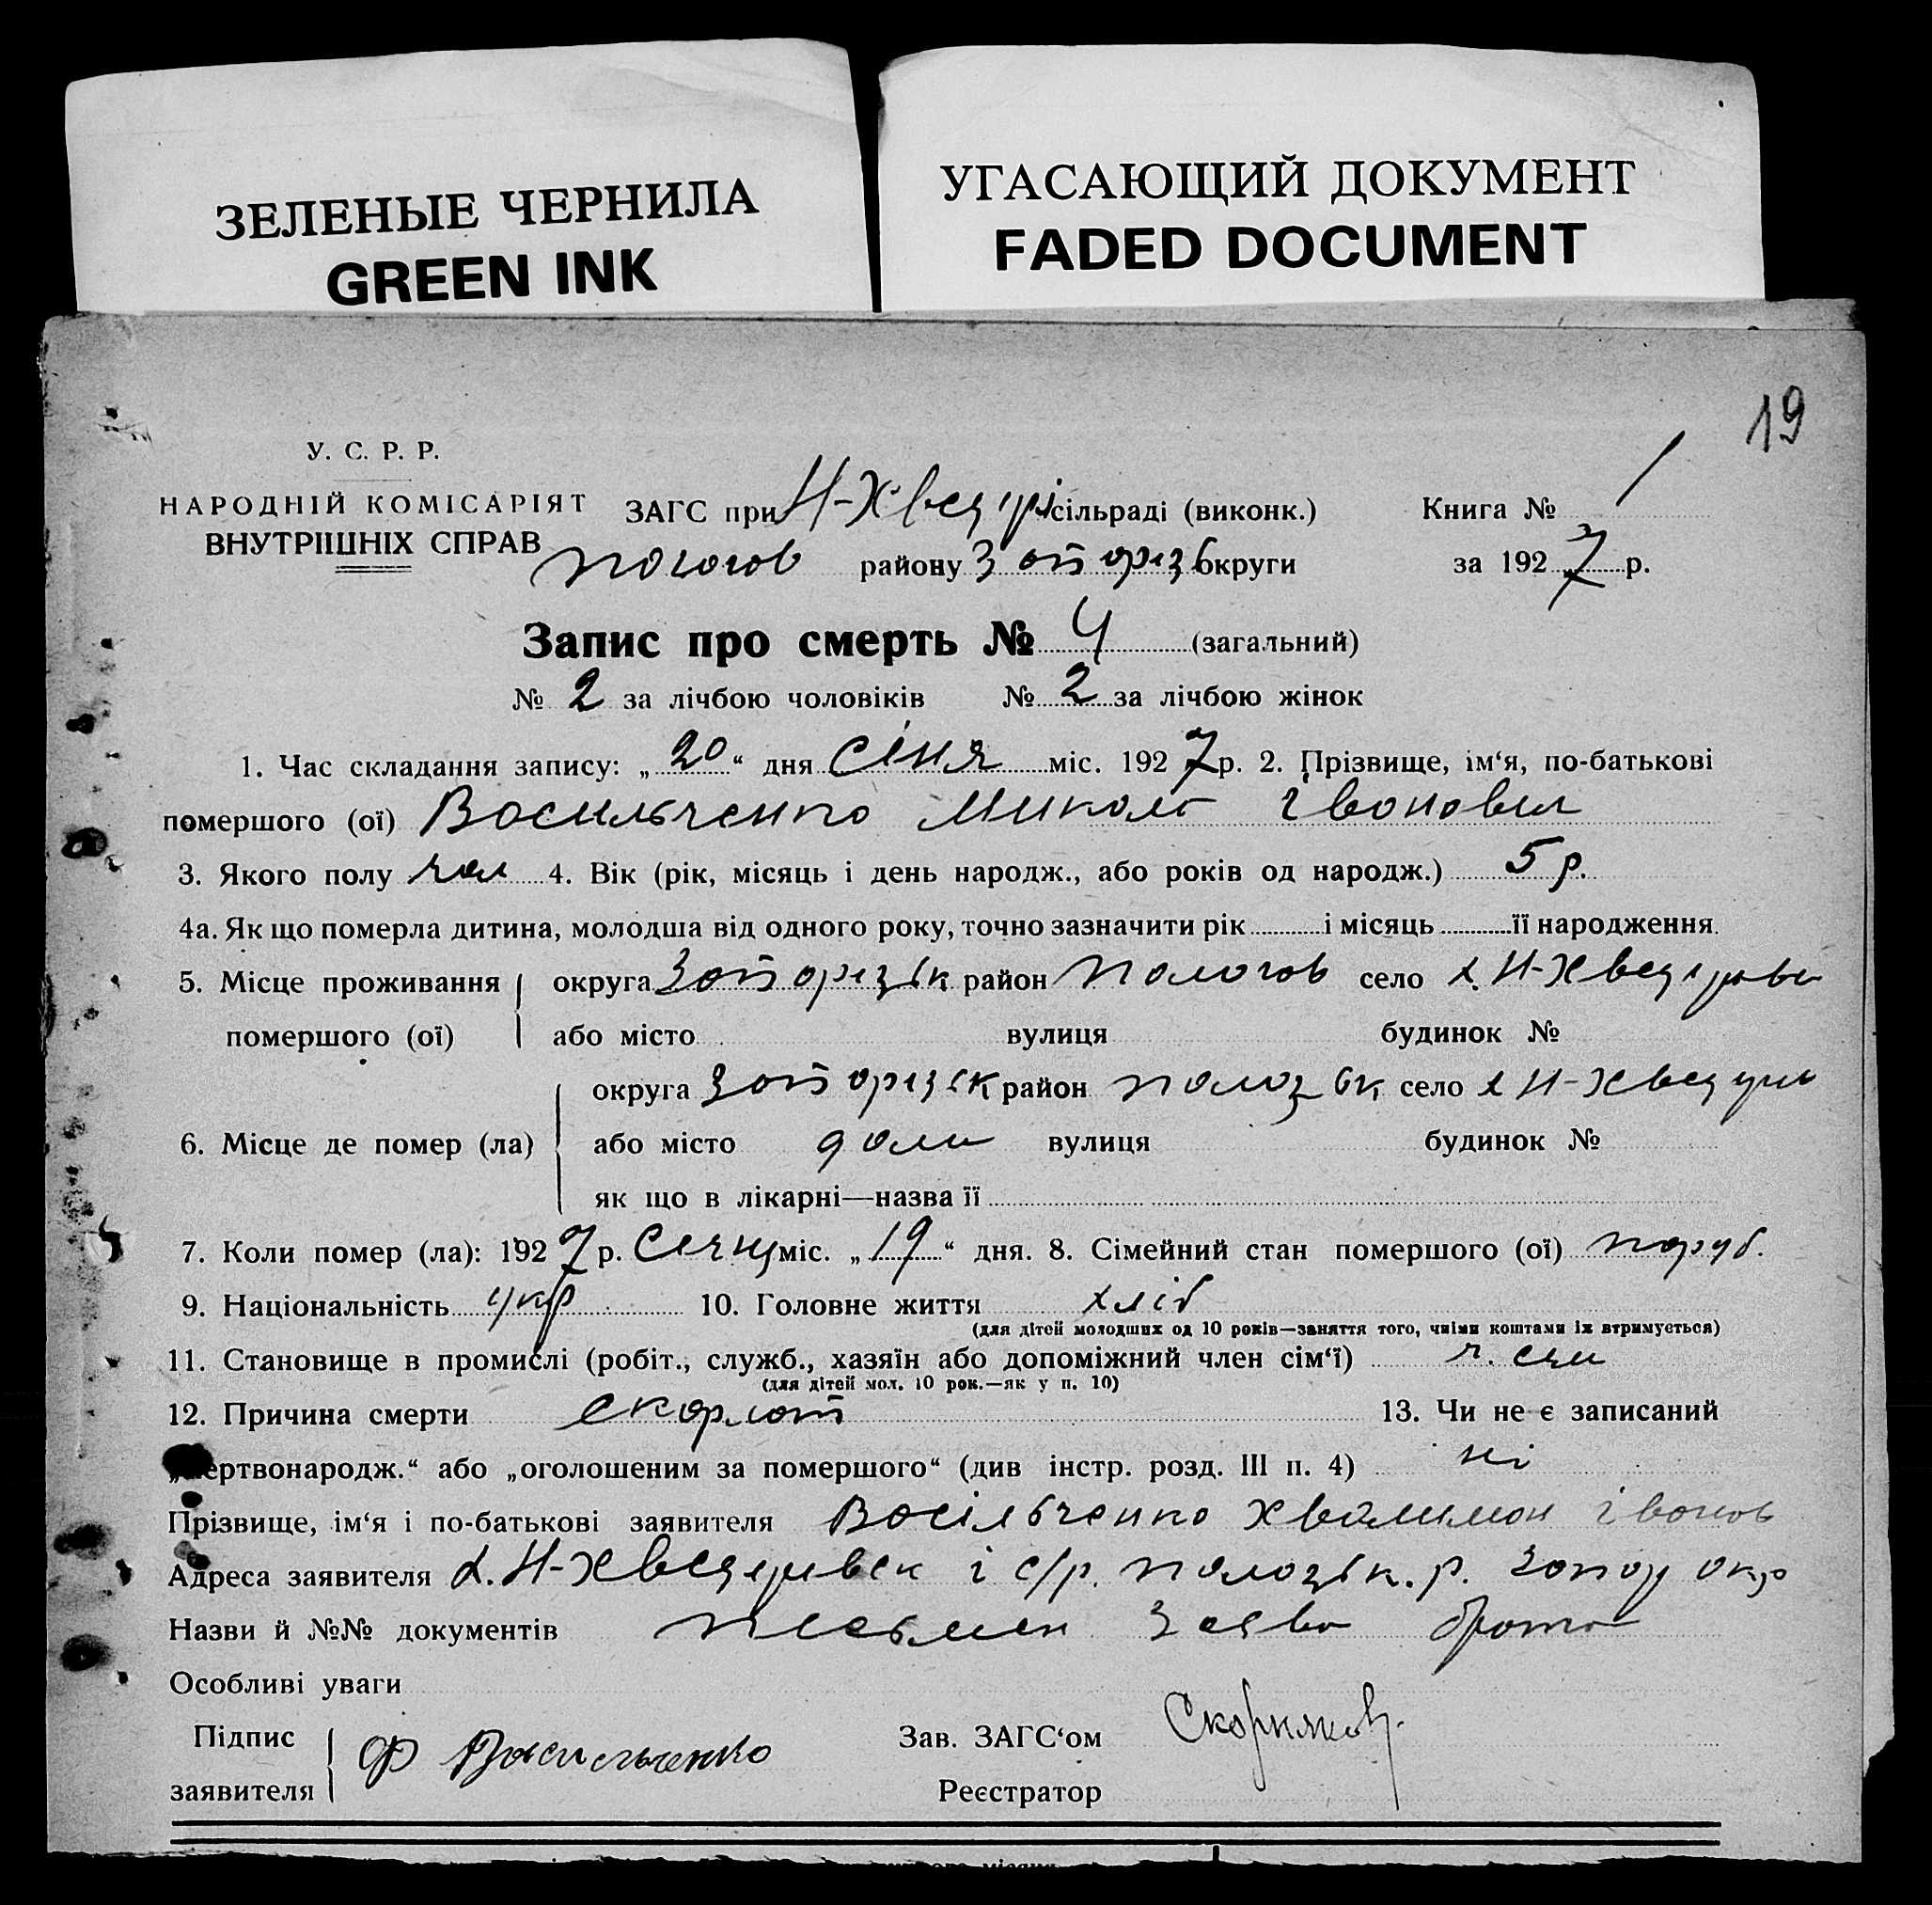 ЗЕЛЕНЫЕ ЧЕРНИЛА
GREEN INK
УГАСАЮЩИЙ ДОКУМЕНТ
FADED DOCUMENT
19
У. С. Р. Р.
НАРОДНІЙ КОМІСАРІЯТ
ВНУТРІШНІХ СПРАВ
ЗАГС при Н-Хведурі сільраді (виконк.) Книга № 1
пологов району Запорізь округи за 1927 р.
Запис про смерть № 4 (загальний)
№ 2 за лічбою чоловіків № 2 за лічбою жінок
1. Час складання запису: „20“ дня січня міс. 1927 р. 2. Прізвище, ім‘я, по-батькові
помершого (ої) Васильченко Микола Іванович
3. Якого полу чол 4. Вік (рік, місяць і день народж., або років од народж.) 5 р.
4а. Як що померла дитина, молодша від одного року, точно зазначити рік і місяць її народження.
5. Місце проживання помершого (ої) округа Запорізьк район Пологов село х. Н-Хведурівк
або місто вулиця будинок №
6. Місце де помер (ла) округа Запорізьк район полозьк село х Н-Хведурів
або місто дома вулиця будинок №
як що в лікарні—назва її
7. Коли помер (ла): 1927 р. Січня міс. „19“ дня. 8. Сімейний стан помершого (ої) паруб.
9. Національність укр 10. Головне життя хліб
(для дітей молодших од 10 років—заняття того, чиїми коштами їх втримується)
11. Становище в промислі (робіт., служб., хазяїн або допоміжний член сім‘ї) ч. сем
(для дітей мол. 10 рок.—як у п. 10)
12. Причина смерти скорлат 13. Чи не є записаний
„мертвонародж.“ або „оголошеним за помершого“ (див інстр. розд. III п. 4) ні
Прізвище, ім‘я і по-батькові заявителя Васільченко Іванов
Адреса заявителя х. Н-Хведурівск і с/р. полозьк. р. Запор окр
Назви й №№ документів письмен заява брата
Особливі уваги
Підпис заявителя Ф Васильченко
Зав. ЗАГС‘ом
Реєстратор